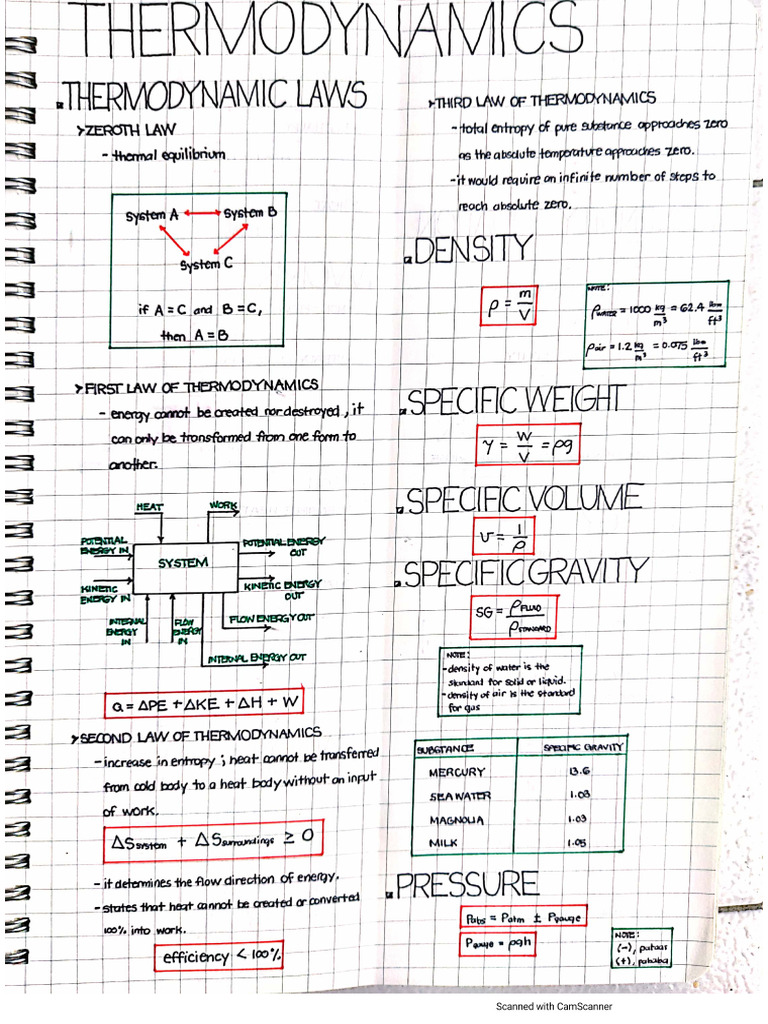 THERMODYNAMICS
THERMODYNAMIC LAWS
➤ZEROTH LAW
- thermal equilibrium
System A ↔ System B
System C
if A = C and B = C,
then A = B
➤FIRST LAW OF THERMODYNAMICS
- energy cannot be created nor destroyed, it
can only be transformed from one form to
another.
HEAT
WORK
POTENTIAL
ENERGY IN
POTENTIAL ENERGY
OUT
SYSTEM
KINETIC
ENERGY IN
KINETIC ENERGY
OUT
INTERNAL
ENERGY
IN
FLOW
ENERGY
IN
FLOW ENERGY OUT
INTERNAL ENERGY OUT
Q = ΔPE + ΔKE + ΔH + W
➤SECOND LAW OF THERMODYNAMICS
- increase in entropy ; heat cannot be transferred
from cold body to a heat body without an input
of work.
ΔSsystem + ΔSsurroundings ≥ 0
- it determines the flow direction of energy.
- states that heat cannot be created or converted
100% into work.
efficiency < 100%
➤THIRD LAW OF THERMODYNAMICS
- total entropy of pure substance approaches zero
as the absolute temperature approaches zero.
- it would require an infinite number of steps to
reach absolute zero.
DENSITY
ρ = m/V
NOTE:
ρWATER = 1000 kg/m³ = 62.4 lbm/ft³
ρair = 1.2 kg/m³ = 0.075 lbm/ft³
SPECIFIC WEIGHT
γ = W/V = ρg
SPECIFIC VOLUME
υ = 1/ρ
SPECIFIC GRAVITY
SG = ρFLUID/ρSTANDARD
NOTE:
- density of water is the
standard for solid or liquid.
- density of air is the standard
for gas
SUBSTANCE SPECIFIC GRAVITY
MERCURY 13.6
SEA WATER 1.03
MAGNOLIA 1.03
MILK 1.05
PRESSURE
Pabs = Patm ± Pgauge
Pgauge = ρgh
NOTE:
(-), pataas
(+), pababa
Scanned with CamScanner